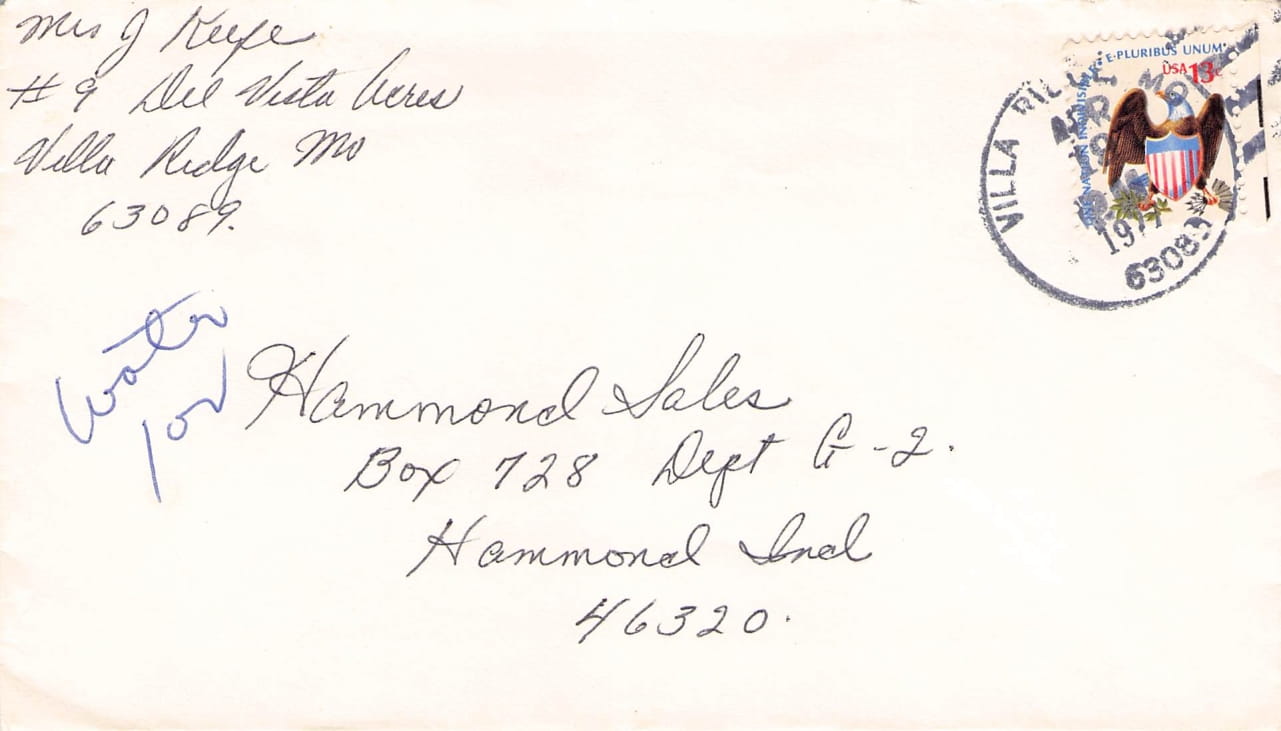 Mrs J Keefe
# 9 Del Vista Acres
Villa Ridge Mo
63089.
E·PLURIBUS UNUM
USA 13c
ONE NATION INDIVISIBLE
VILLA RIDGE, MO
APR
1977
63089
Water
Hammond Sales
Box 728 Dept G-2.
Hammond Ind
46320.